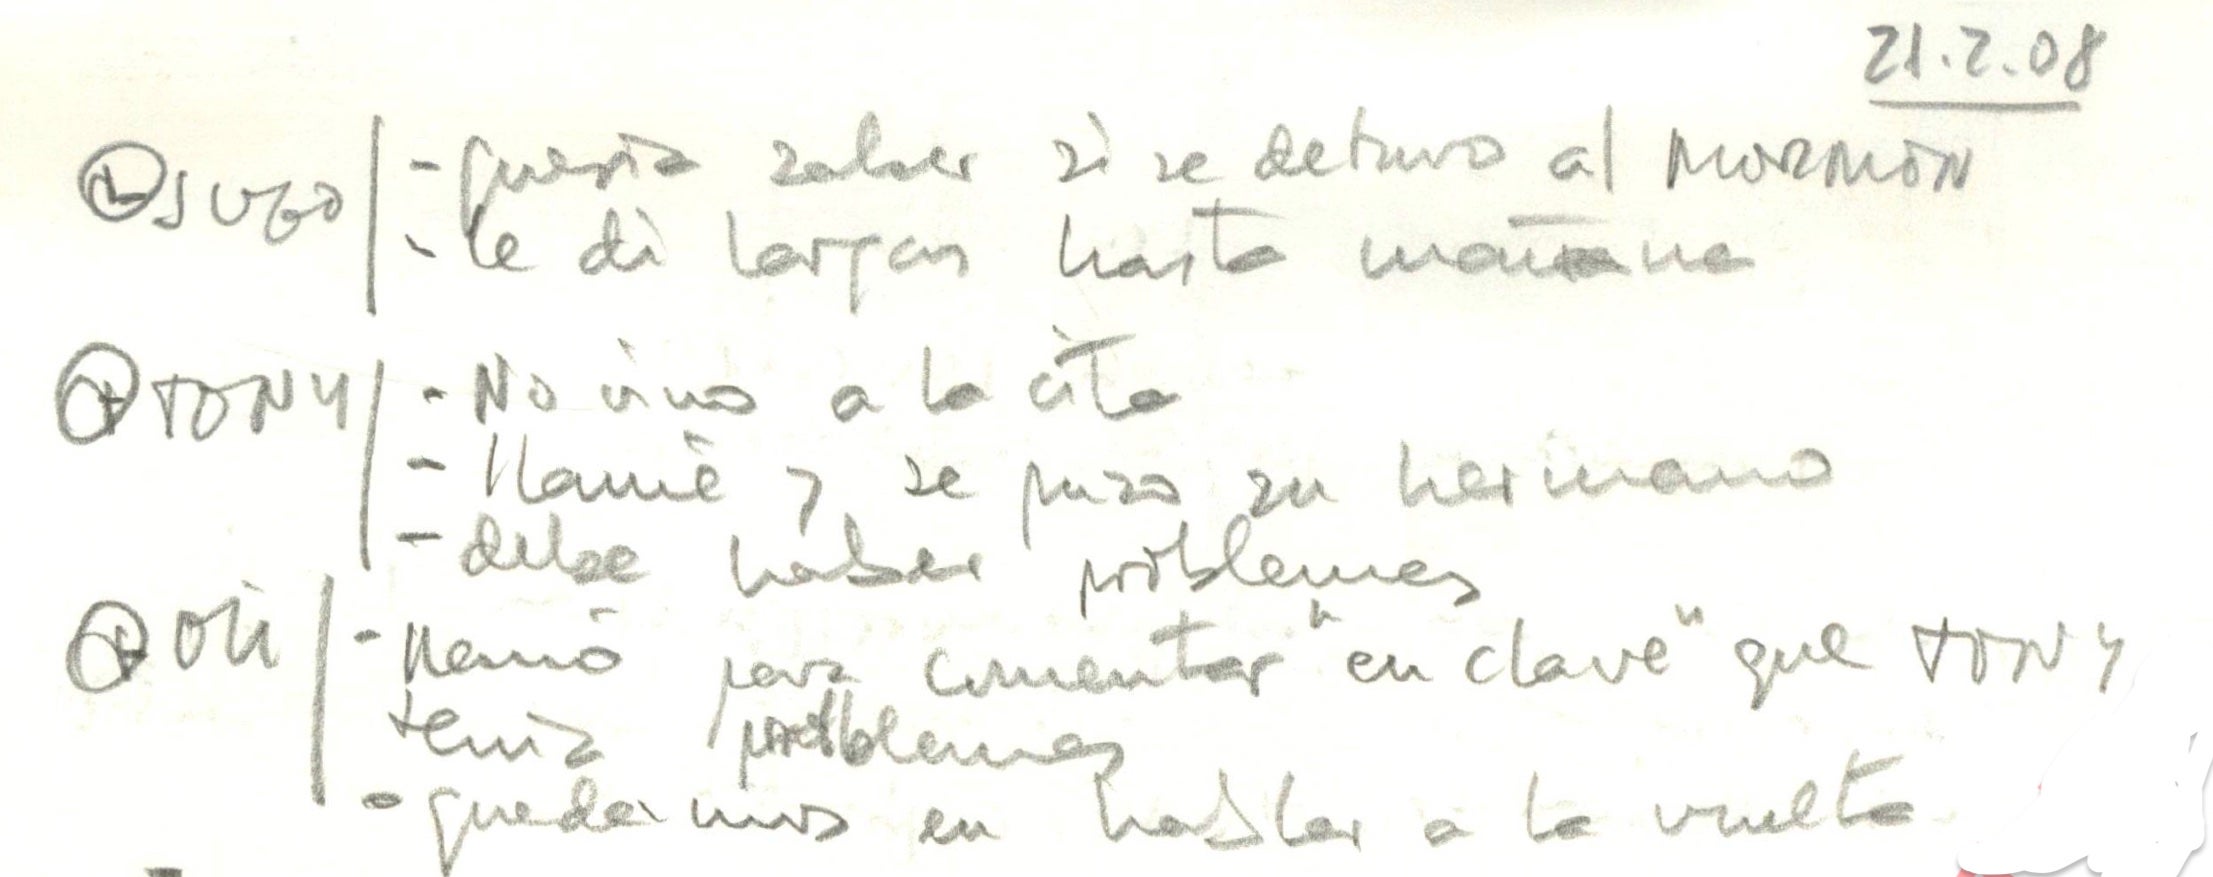 21.2.08
JUGO - quería saber si se detuvo al MORMÓN
- le di largas hasta mañana
TONY - No vino a la cita
- llamé y se puso su hermano
- debe haber problemas
Oli - llamó para comentar "en clave" que TONY
tenía problemas
- quedamos en hablar a la vuelta